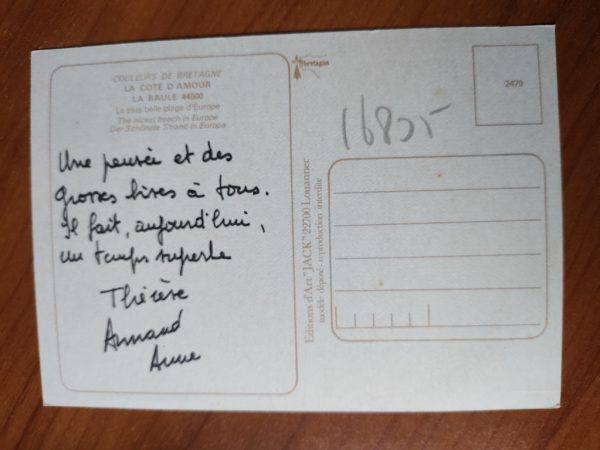 COULEURS DE BRETAGNE
LA COTE D'AMOUR
LA BAULE 44500
La plus belle plage d'Europe
The nicest beach in Europe
Der Schönste Strand in Europa
Une pensée et des
grosses bises à tous.
Il fait, aujourd'hui,
un temps superbe
Thérèse
Armand
Anne
Editions d'Art "JACK" 22700 Louannec
modèle déposé - reproduction interdite
bretagne
16805
2479